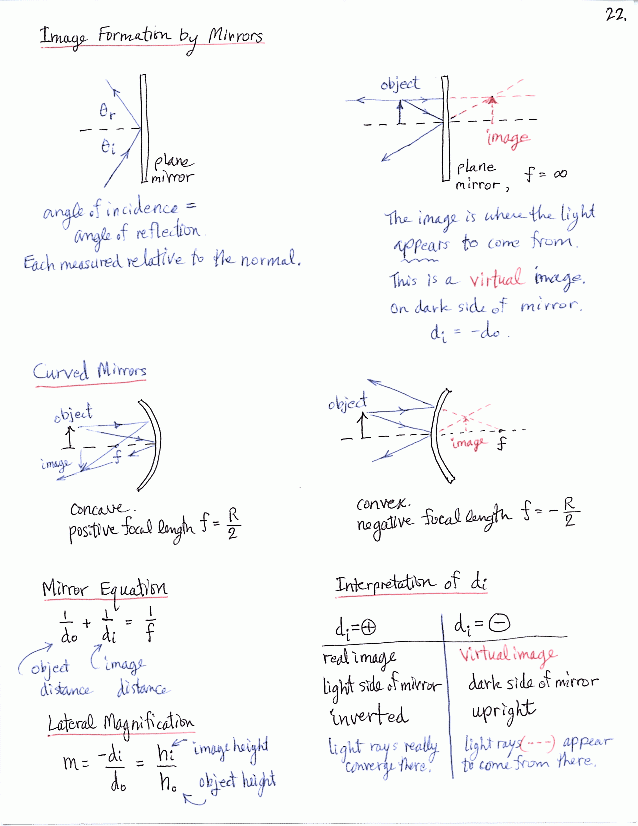 22.
Image Formation by Mirrors
θr
θi
plane
mirror
angle of incidence =
angle of reflection
Each measured relative to the normal.
object
image
plane
mirror, f = ∞
The image is where the light
appears to come from.
This is a virtual image.
on dark side of mirror.
di = -do.
Curved Mirrors
object
image
f
concave.
positive focal length f = R/2
object
image
f
convex.
negative focal length f = - R/2
Mirror Equation
1/do + 1/di = 1/f
object
distance
image
distance
Lateral Magnification
m = -di/do = hi/ho
image height
object height
Interpretation of di
di = ⊕
di = ⊖
real image
virtual image
light side of mirror
dark side of mirror
inverted
upright
light rays really
converge there.
light rays (----) appear
to come from there.